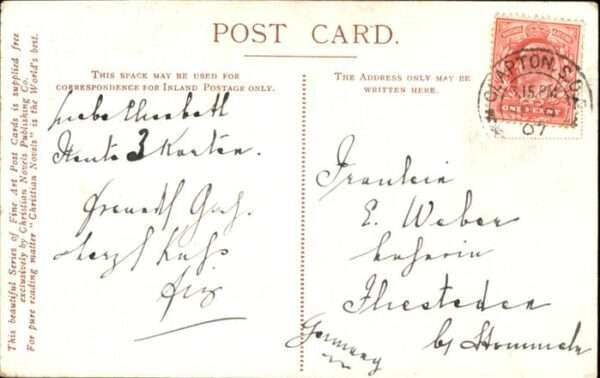 POST CARD.
THIS SPACE MAY BE USED FOR
CORRESPONDENCE FOR INLAND POSTAGE ONLY.
THE ADDRESS ONLY MAY BE
WRITTEN HERE.
Liebe Elisabeth
Heute 3 Karten.
Fräulein
E. Weber
Lehrerin
Germany
This beautiful Series of Fine Art Post Cards is supplied free
exclusively by Christian Novels Publishing Co.
For pure reading matter "Christian Novels" is the World's best.
CLAPTON S.O.
3.15 PM
07
ONE PENNY